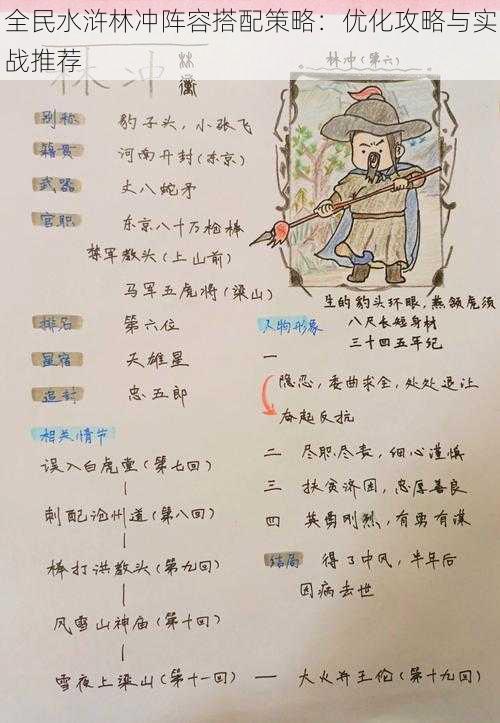 全民水浒林冲阵容搭配策略：优化攻略与实
战推荐
林冲
林冲(第六)
别称 豹子头，小张飞
籍贯 河南开封(东京)
武器 丈八蛇矛
官职 东京八十万枪棒
禁军教头(上山前)
马军五虎将(梁山)
排名 第六位
星宿 天雄星
追封 忠五郎
相关情节
误入白虎堂(第七回)
刺配沧州道(第八回)
棒打洪教头(第九回)
风雪山神庙(第十回)
雪夜上梁山(第十一回) — 大火并王伦(第十九回)
生的豹头环眼，燕颔虎须
八尺长短身材
三十四五年纪
人物形象
一 隐忍，委曲求全，处处退让
奋起反抗
二 尽职尽责，细心谨慎
三 扶贫济困，忠厚善良
四 英勇刚烈，有勇有谋
结局 得了中风，半年后
因病去世